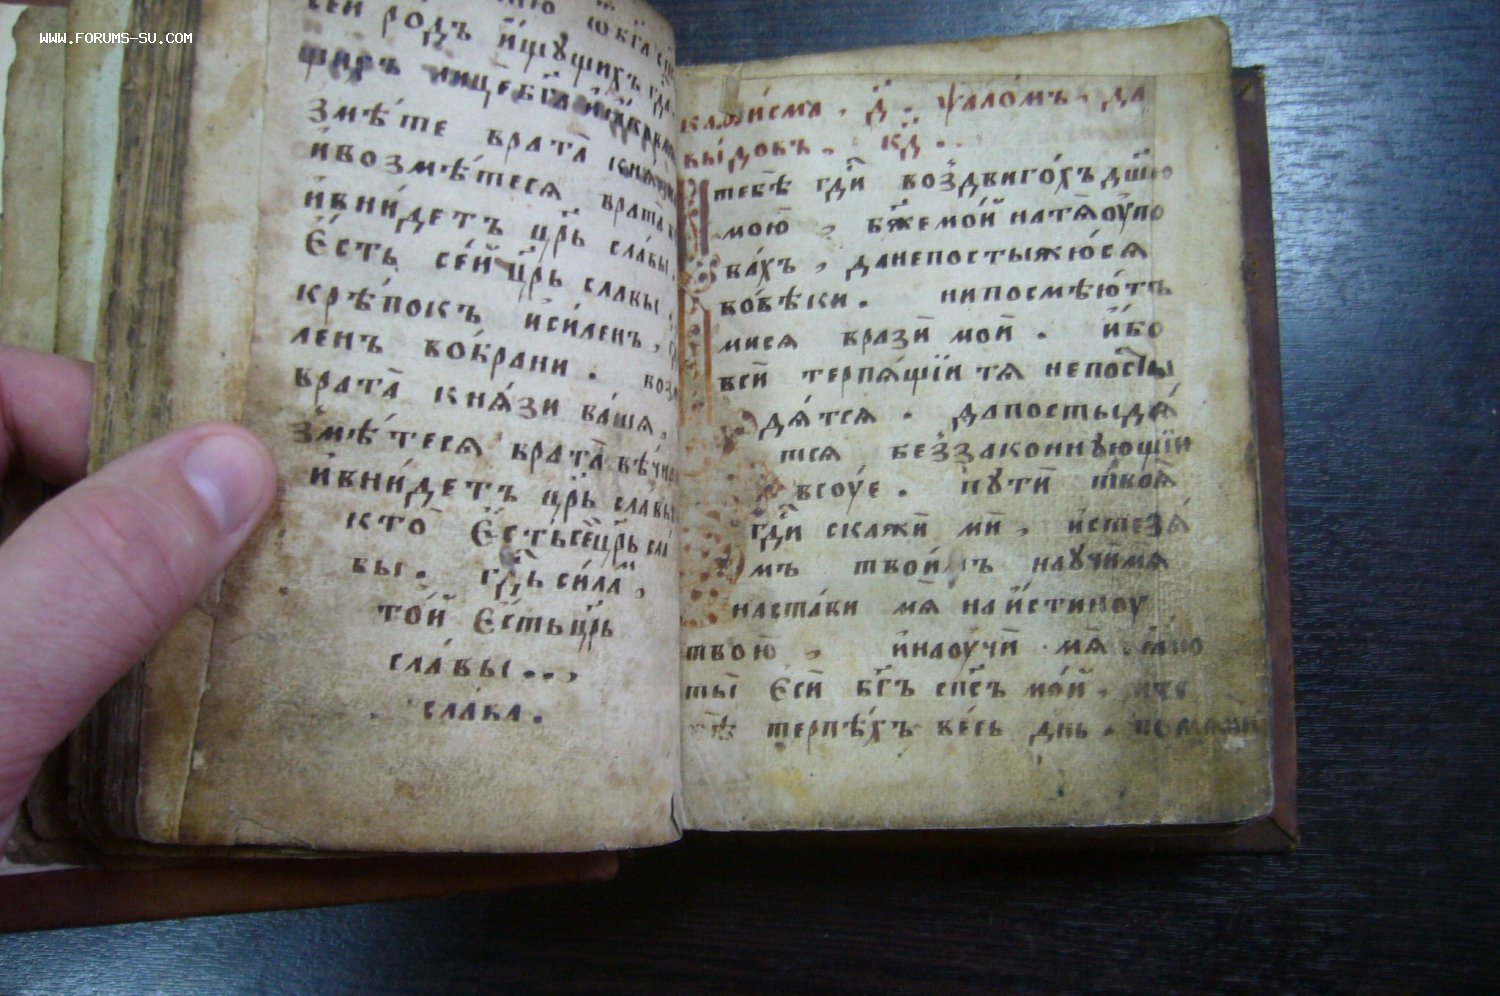 WWW.FORUMS-SU.COM
сей ро́дъ и҆́щꙋщихъ гд҇а
лице бг҃а
змѣ́те врата̀
и҆возмѣ́теся врата̀
и҆вни́детъ цр҃ь сла́вы.
є҆́сть се́й цр҃ь славы
крѣ́покъ и҆си́ленъ,
ленъ во́брани. воз
врата̀ кня́зи ва́шя.
змѣ́теся врата̀ вѣ́чна
и҆вни́детъ цр҃ь сла́вы
кто̀ є҆́стьсе́йцр҃ь сла
вы. гд҇ь си́ламъ,
то́й є҆́стьцр҃ь
сла́вы..,
сла́ва.
каѳи́сма, д҃. ѱало́мъ, да
вы́довъ, к҃д..
тебѣ̀ гд҇и воздвиго́хъ дш҃ю
мою̀, бж҃емо́й натяоу҆по
ва́хъ, данепостыжю́ся
во́вѣки. нипосмѣю́тъ
мися вразѝ моѝ. и҆́бо
всѝ терпя́щїи тя непости
дя́тся. дапостыдя́
тся беззаконнꙋющїи
всоу́е. пꙋтѝ твоя̀
гд҇и скажѝ мѝ, истезя́
мъ твои́мъ наꙋчи́мя
наста́ви мя̀ наи҆́стиноу
твою̀, и҆наоучѝ мя̀. ꙗ҆́ко
ты̀ є҆сѝ бг҃ъ сп҃съ мо́й.
терпѣ́хъ ве́сь днь. помяни